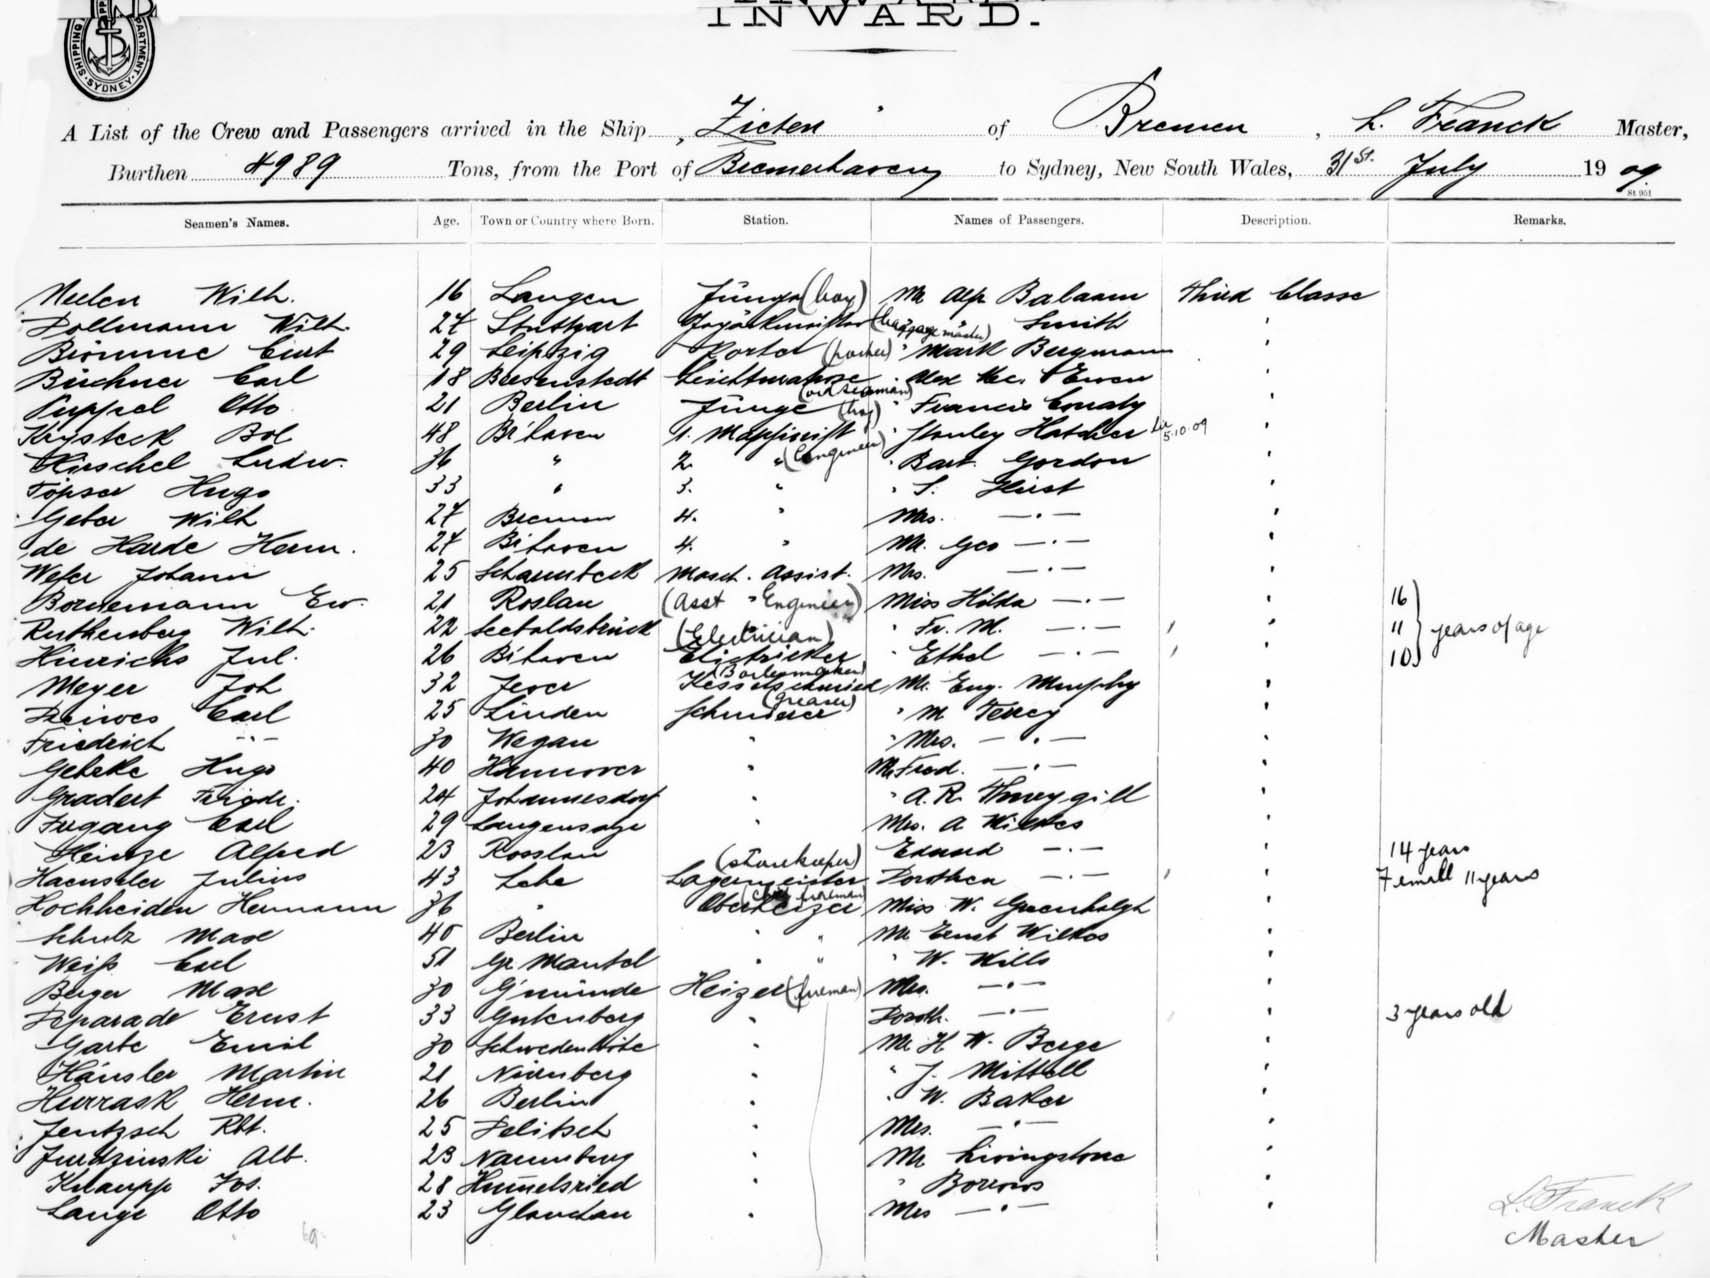 INWARD.
SHIPPING DEPARTMENT SYDNEY
A List of the Crew and Passengers arrived in the Ship Zieten of Bremen, L. Franck Master,
Burthen 4989 Tons, from the Port of Bremerhaven to Sydney, New South Wales, 31st. July 1909
St 951
Seamen's Names. Age. Town or Country where Born. Station. Names of Passengers. Description. Remarks.
Wilh. 16 Langen Junge (boy) Mr Alf Balaam third Classe
Dollmann Wilh. 27 Stuttgart Gepäckmeister (baggage master) " Smith "
Brömme Curt 29 Leipzig Porter (porter) " Mark Bergmann "
Büchner Carl 18 Beesenstedt Leichtmatrose (ord seaman) " Alex Mc. Ewen "
Puppel Otto 21 Berlin Junge (boy) " Francis Conaty "
Krysteck Bol 48 B'haven 1. Maschinist " Stanley Hatcher 5.10.09 "
Hirschel Ludw. 36 " 2. " (Engineer) " Bart. Gordon "
Töpser Hugo 33 " 3. " " S. Hirst "
Geber Wilh 27 Bremen 4. " Mrs. — " — "
de Harde Herm. 27 B'haven 4. " Mr. Geo — " — "
Weser Johann 25 Schaumbeck Masch. Assist. Mrs. — " — "
Bornemann Ew. 21 Roslau (Asst " Engineer) Miss Hilda — " — " 16
Ruthenberg Wilh. 22 Seeboldsbrück (Electrician) " Fr. M. — " — " 11 years of age
Hinrichs Jul. 26 B'haven Elictricker " Ethel — " — " 10
Meyer Joh 32 Jever Kesselschmied (Boilermaker) Mr. Eug. Murphy "
Dreiwes Carl 25 Linden Schmierer (Greaser) " M Terrey "
Friedrich — " — 30 Wegan " " Mrs. — " — "
Gebeke Hugo 40 Hannover " Mr Fred. — " — "
Gradert Friedr. 24 Johannesdorf " " A. R. Thweygill "
Fregang Carl 29 Langensalze " Mrs. A Wilkes "
Heinze Alfred 23 Rosslau " Eduard — " — " 14 years
Haensler Julius 43 Lehe Lagermeister (storekeeper) Dorothea — " — " Female 11 years
Hochheiden Hermann 36 " Oberheizer (Chief fireman) Miss W. Greenhalgh "
Schulz Max 40 Berlin " " Mr Ernst Wilkos "
Weiß Carl 51 Gr Mantel " " " W. Wills "
Berger Max 30 G'münde Heizer (fireman) Mrs. — " — "
Deparade Ernst 33 Gutenberg " Doroth. — " — " 3 years old
Garbe Emil 30 Schwedenhöhe " Mr H W. Berge "
Häusler Martin 21 Nürnberg " " J. Mittell "
Hurrask Herm. 26 Berlin " " W. Baker "
Jentzsch Rbt. 25 Delitsch " Mrs. — " — "
Jurdzinski Alb. 23 Naumburg " Mr Livingstone "
Knaupp Jos. 28 Himmelsried " " Borrows "
Lange Otto 23 Glauchau " Mrs — " — "
L. Franck
Master